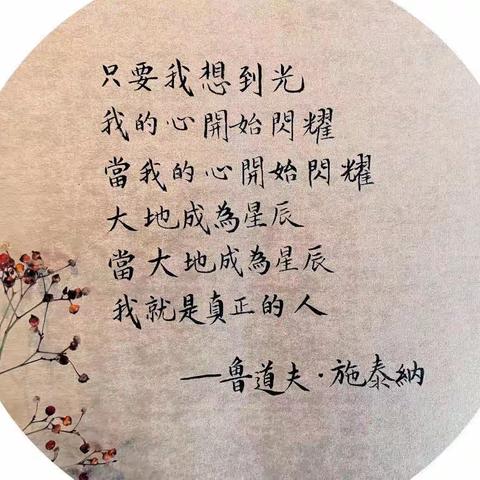 只要我想到光
我的心開始閃耀
當我的心開始閃耀
大地成為星辰
當大地成為星辰
我就是真正的人
—魯道夫·施泰納